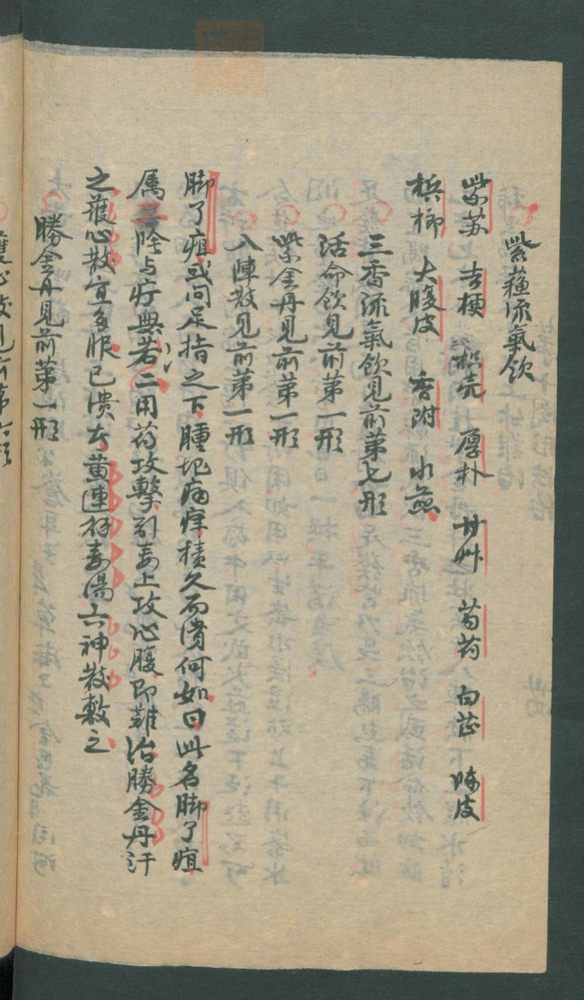 紫蘓流氣飲
紫苏 吉梗 枳壳 厚朴 甘艸 芍药 白芷 陳皮
梹榔 大腹皮 香附 水煎
三香流氣飲見前第七形
活命飲見前第一形
紫金丹見前第一形
八陣散見前第一形
脚了疽或问足指之下腫地痛痒積久而潰何如曰此名脚了疽
属三陰与疔無若二用药攻擊引毒上攻心腹即難治勝金丹汗
之護心散宜多服已潰大黄連解毒湯六神散敷之
勝金丹見前第一形
護心散見前第一形